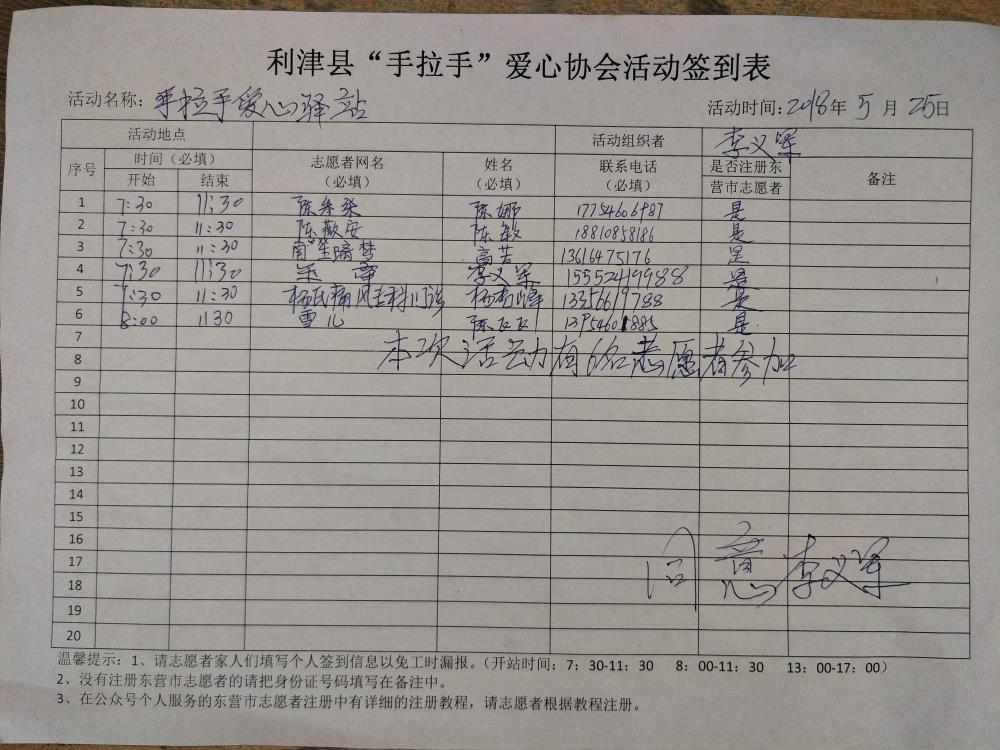 利津县“手拉手”爱心协会活动签到表
活动名称：手拉手爱心驿站 活动时间：2018年 5月 25日
活动地点 活动组织者 李义军
序号 时间（必填） 志愿者网名（必填） 姓名（必填） 联系电话（必填） 是否注册东营市志愿者 备注
开始 结束
1 7:30 11:30 陈 陈娜 17754606987 是
2 7:30 11:30 陈 安 陈敏 18810858186 是
3 7:30 11:30 南笙暗梦 高芳 13616475176 是
4 7:30 11:30 李义军 15552419988 是
5 7:30 11:30 杨氏痛风专科门诊 杨 峰 是
6 8:00 11 30 雪儿 陈 是
7
8 本次活动有6名志愿者参加
9
10
11
12
13
14
15
16
17
18 同意 李义军
19
20
温馨提示：1、请志愿者家人们填写个人签到信息以免工时漏报。（开站时间：7：30-11：30 8：00-11：30 13：00-17：00）
2、没有注册东营市志愿者的请把身份证号码填写在备注中。
3、在公众号个人服务的东营市志愿者注册中有详细的注册教程，请志愿者根据教程注册。